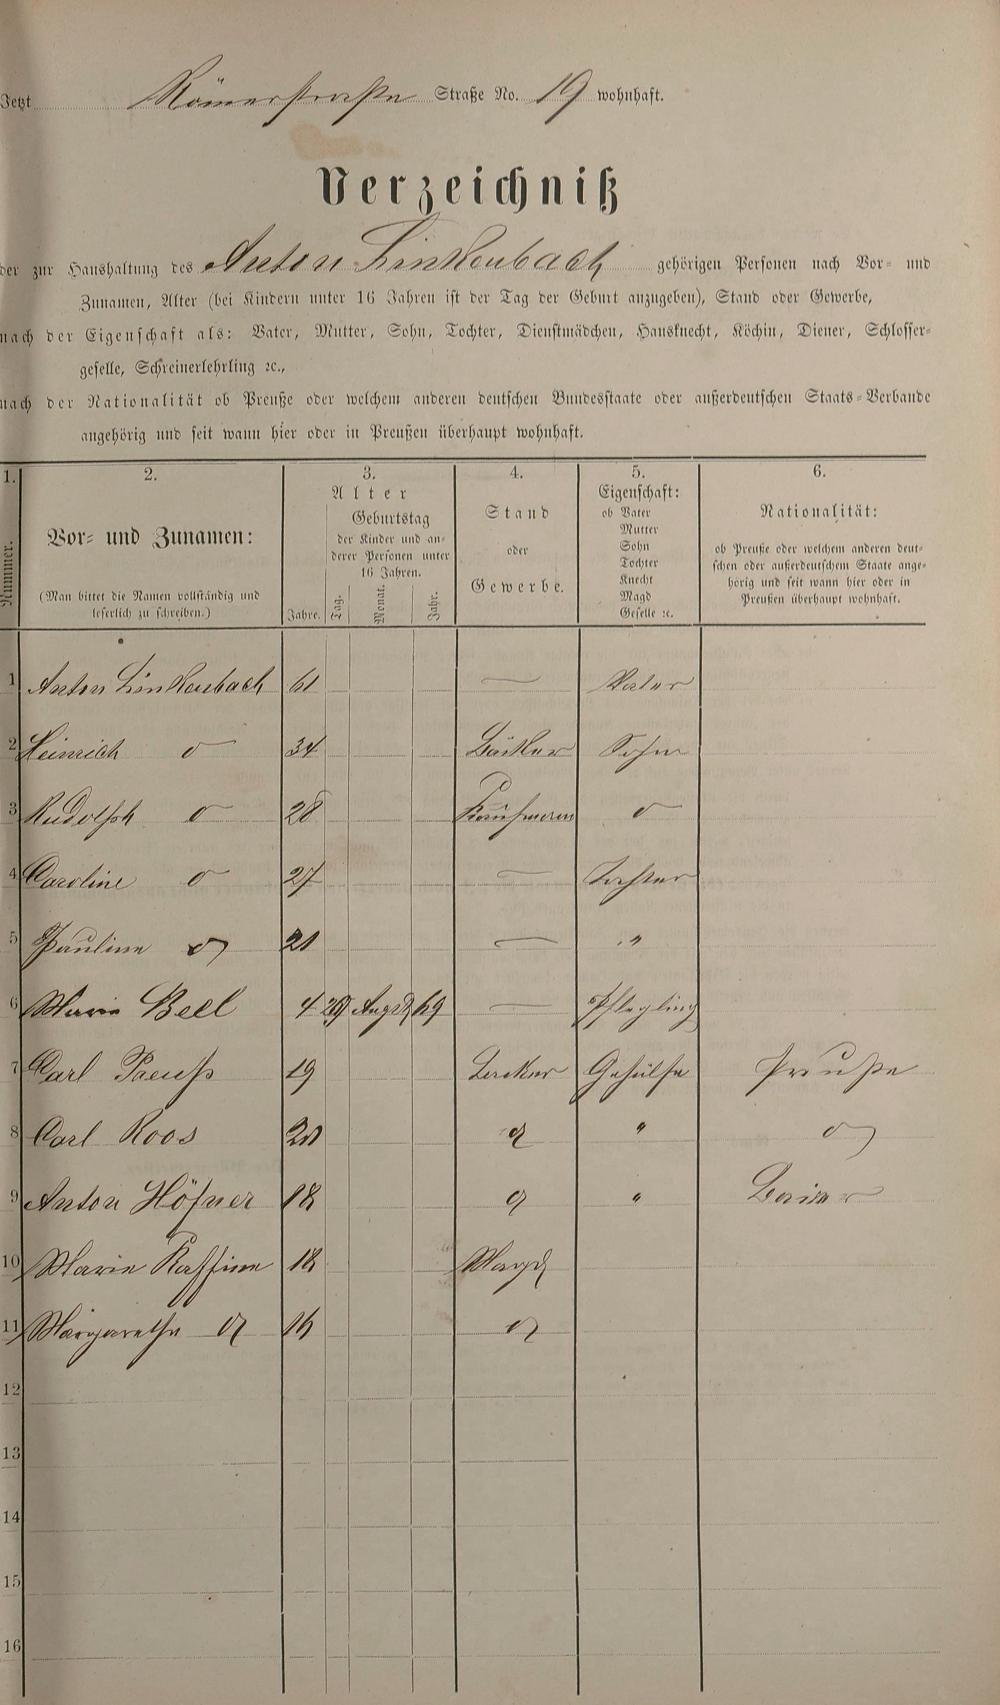 Jetzt Römerstraße Straße No. 19 wohnhaft.
Verzeichniß
der zur Haushaltung des Anton Linkenbach gehörigen Personen nach Vor- und
Zunamen, Alter (bei Kindern unter 16 Jahren ist der Tag der Geburt anzugeben), Stand oder Gewerbe,
nach der Eigenschaft als: Vater, Mutter, Sohn, Tochter, Dienstmädchen, Hausknecht, Köchin, Diener, Schlosser-
geselle, Schreinerlehrling ꝛc.,
nach der Nationalität ob Preuße oder welchem anderen deutschen Bundesstaate oder außerdeutschen Staats-Verbande
angehörig und seit wann hier oder in Preußen überhaupt wohnhaft.
1. 2. 3. 4. 5. 6.
Nummer.
Vor- und Zunamen:
(Man bittet die Namen vollständig und
leserlich zu schreiben.)
Alter
Geburtstag
der Kinder und an-
derer Personen unter
16 Jahren.
Jahre. Tag. Monat. Jahr.
Stand
oder
Gewerbe.
Eigenschaft:
ob Vater
Mutter
Sohn
Tochter
Knecht
Magd
Geselle ꝛc.
Nationalität:
ob Preuße oder welchem anderen deut-
schen oder außerdeutschem Staate ange-
hörig und seit wann hier oder in
Preußen überhaupt wohnhaft.
1 Anton Linkenbach 61 — Vater
2 Heinrich d 34 Bäcker Sohn
3 Rudolph d 28 Kaufmann d
4 Caroline d 27 — Tochter
5 Pauline d 21 — "
6 Marie Bell 4 29 Augst 69 — Pflegling
7 Carl 19 Backer Gehülfe Preuße
8 Carl Roos 20 d " d
9 Anton Höfner 18 d " Baier
10 Marie Raffine 18 Magd
11 Margarethe d 16 d
12
13
14
15
16